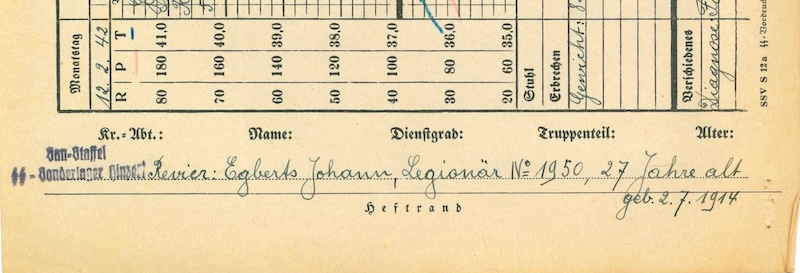 Monatstag 12. 2. 42
R P T
80 180 41,0
70 160 40,0
60 140 39,0
50 120 38,0
40 100 37,0
30 80 36,0
20 60 35,0
Stuhl
Erbrechen
Gewicht:
Verschiedenes
Diagnose:
SSV S 12a ϟϟ-Vordruck
Kr.-Abt.: Name: Dienstgrad: Truppenteil: Alter:
Ban-Staffel
ϟϟ-Sonderlager Hinzert Revier: Egberts Johann, Legionär No 1950, 27 Jahre alt
geb. 2. 7. 1914
Heftrand